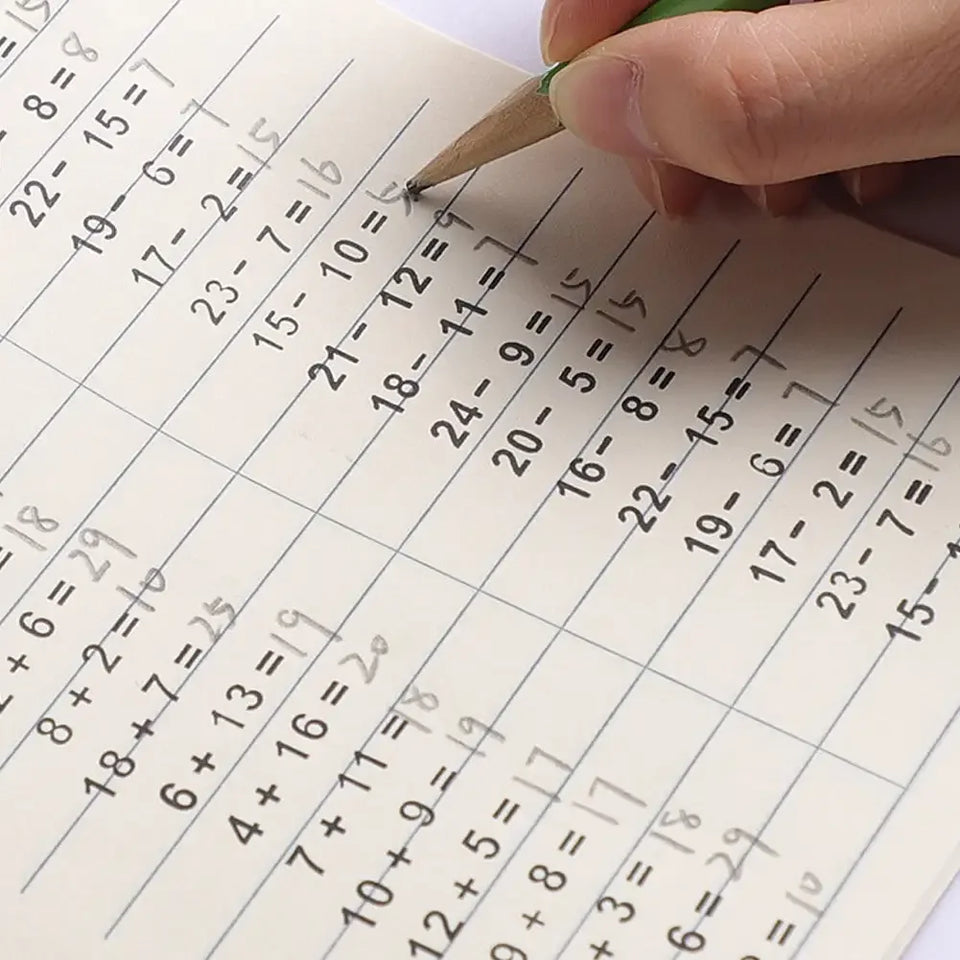 = 15
- 8 = 8
22- 15 = 7
19- 6 = 7
17- 2 = 15
23- 7 = 16
15- 10 = 5
21- 12 = 9
18- 11 = 7
24- 9 = 15
20- 5 = 15
16- 8 = 8
22- 15 = 7
19- 6 = 7
17- 2 = 15
23- 7 = 16
15-
= 18
+ 6 = 29
8 + 2 = 10
18 + 7 = 25
6 + 13 = 19
4 + 16 = 20
7 + 11 = 18
10 + 9 = 19
12 + 5 = 17
9 + 8 = 17
+ 3 = 18
6 = 29
= 10